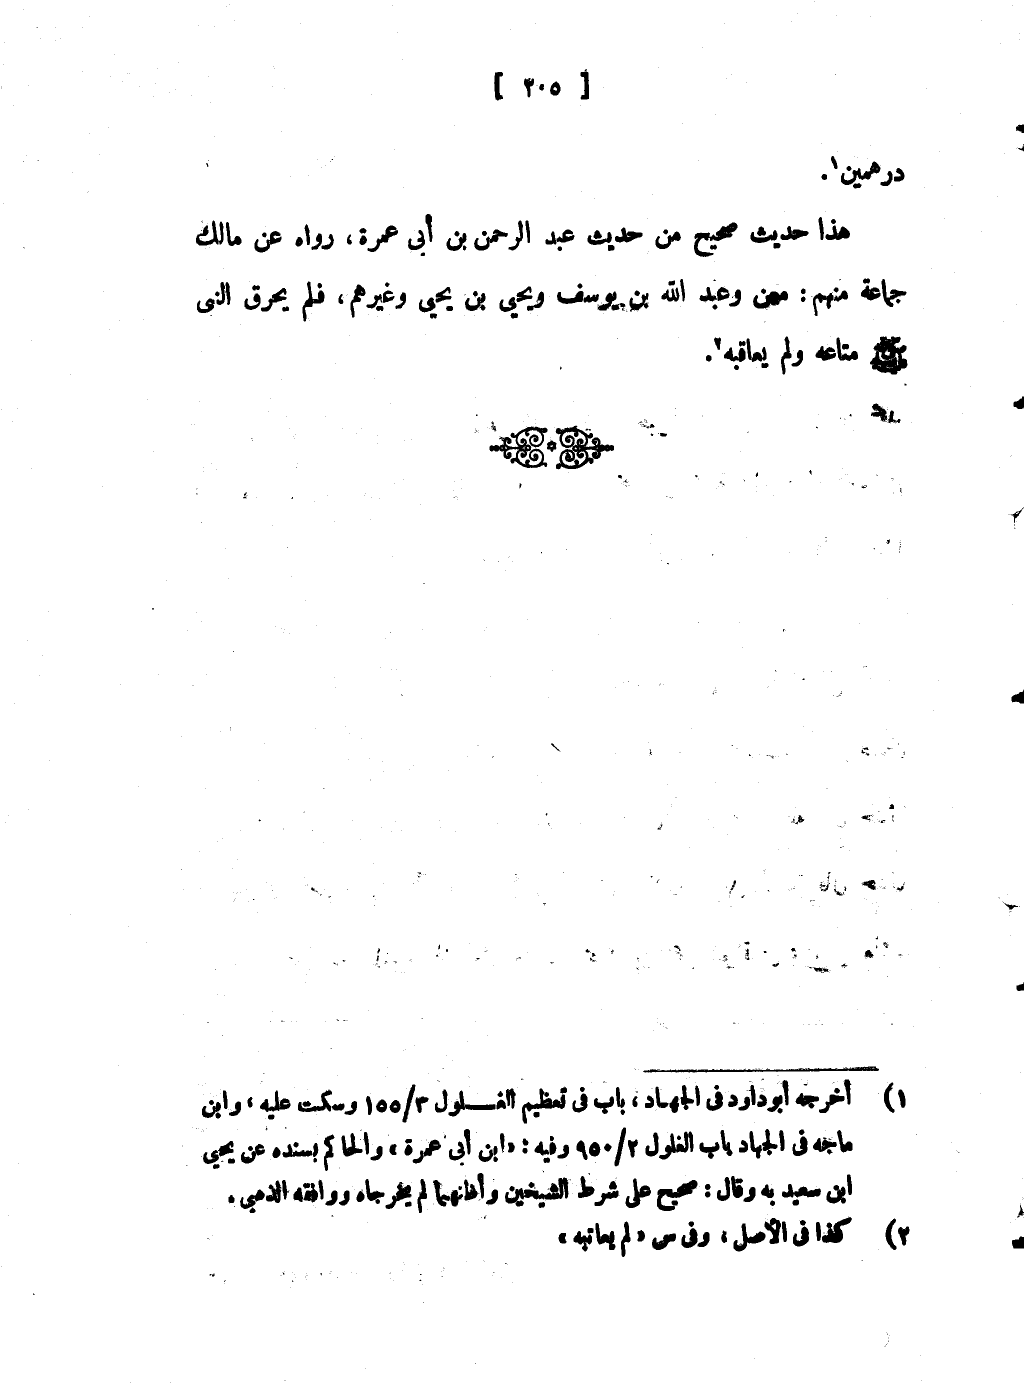 [ ٣٠٥ ]
درهمين١.
هذا حديث صحيح من حديث عبد الرحمن بن أبى عمرة، رواه عن مالك
جماعة منهم: معن وعبد الله بن يوسف ويحيى بن يحيى وغيرهم، فلم يحرق النبى
ﷺ متاعه ولم يعاقبه٢.
١) أخرجه أبوداود فى الجهاد، باب فى تعظيم الغلول ١٥٥/٣ وسكت عليه، وابن
ماجه فى الجهاد باب الغلول ٩٥٠/٢ وفيه: «ابن أبى عمرة» والحاكم بسنده عن يحيى
ابن سعيد به وقال: صحيح على شرط الشيخين وأظنهما لم يخرجاه ووافقه الذهبى.
٢) كذا فى الأصل، وفى س «لم يعاتبه»